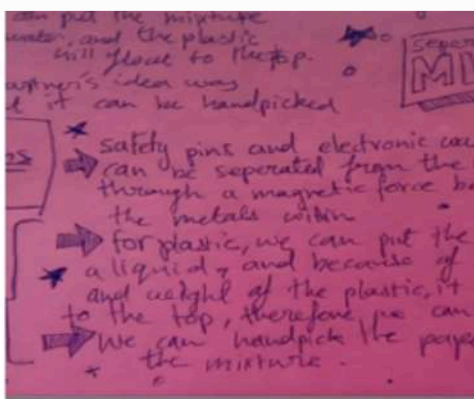 can put the mixture
water, and the plastic
will float to the top.
partner's idea was
it can be handpicked
seper
MI
safety pins and electronic
can be seperated from the
through a magnetic force b
the metals within
for plastic, we can put the
a liquid, and because of
and weight of the plastic, it
to the top, therefore we can
We can handpick the pape
the mixture.